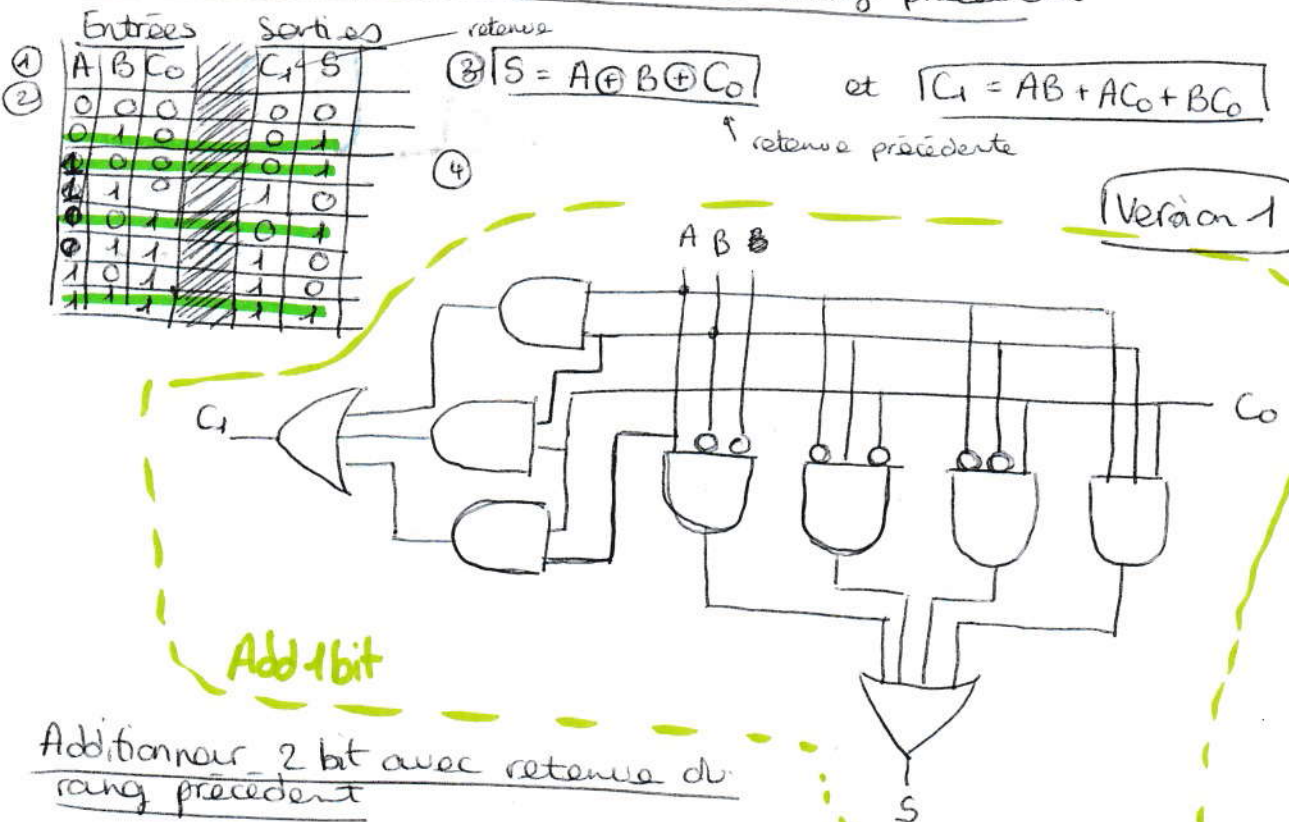 rang précédent
Entrées Sorties
retenue
① A B C₀ C₁ S
②
0 0 0 0 0
0 1 0 0 1
1 0 0 0 1
1 1 0 1 0
0 0 1 0 1
0 1 1 1 0
1 0 1 1 0
1 1 1 1 1
③ S = A ⊕ B ⊕ C₀ et C₁ = AB + AC₀ + BC₀
retenue précédente
④
Version 1
A B
C₁
C₀
Add 1bit
S
Additionneur 2 bit avec retenue du
rang précédent